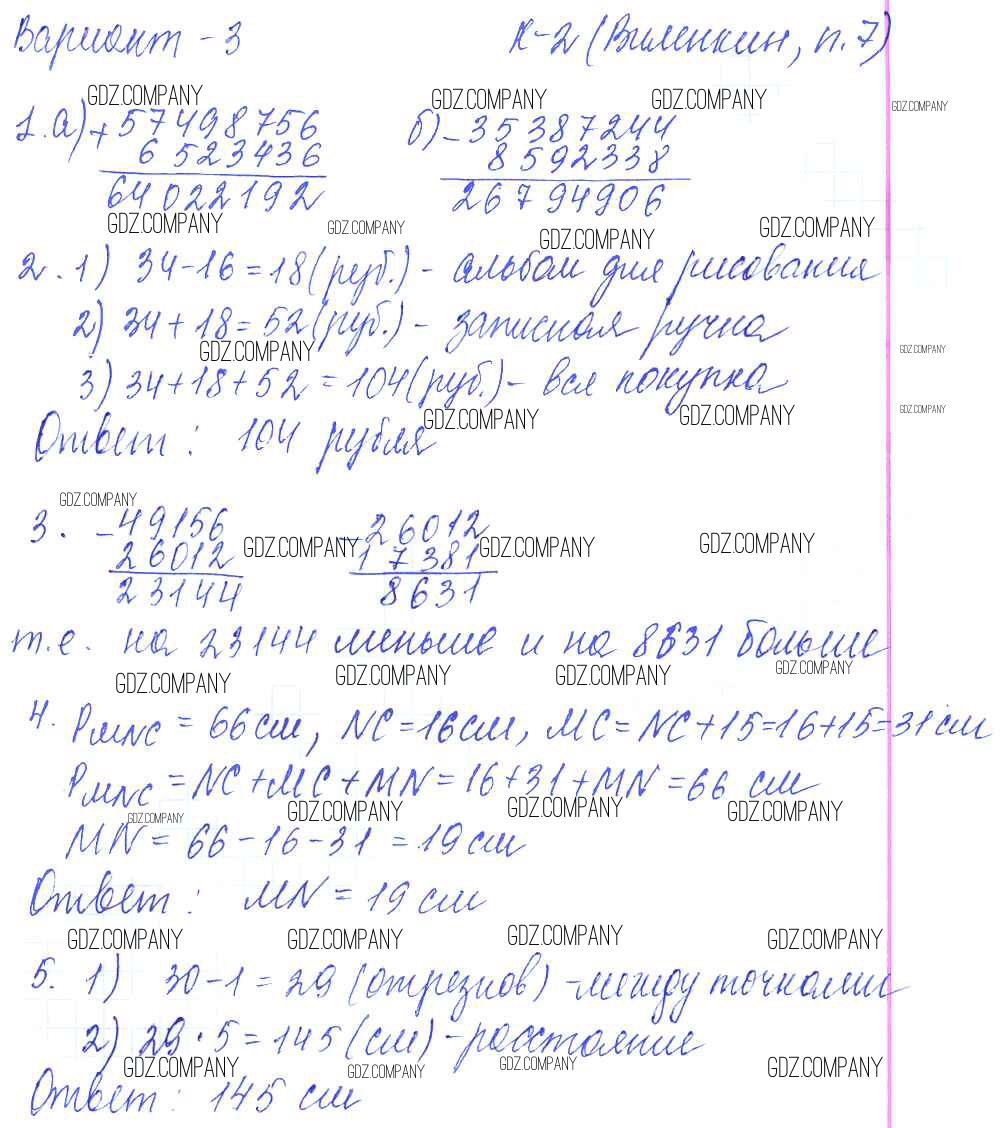 Вариант - 3 К-2 (Виленкин, п.7)
GDZ.COMPANY GDZ.COMPANY GDZ.COMPANY GDZ.COMPANY
1. а) + 57498756 б) - 35387244
6523436 8592338
64022192 26794906
GDZ.COMPANY GDZ.COMPANY GDZ.COMPANY GDZ.COMPANY
2. 1) 34-16=18(руб.) - альбом для рисования
2) 34+18=52(руб.) - записная ручка
GDZ.COMPANY GDZ.COMPANY
3) 34+18+52=104(руб.) - вся покупка
GDZ.COMPANY GDZ.COMPANY GDZ.COMPANY
Ответ: 104 рубля
GDZ.COMPANY
3. - 49156 - 26012
26012 17381
GDZ.COMPANY GDZ.COMPANY GDZ.COMPANY
23144 8631
т.е. на 23144 меньше и на 8631 больше
GDZ.COMPANY GDZ.COMPANY GDZ.COMPANY GDZ.COMPANY
4. PMNC = 66 см, NC=16см, MC=NC+15=16+15=31 см
PMNC = NC+MC+MN=16+31+MN=66 см
GDZ.COMPANY GDZ.COMPANY GDZ.COMPANY GDZ.COMPANY
MN = 66-16-31 = 19 см
Ответ: MN = 19 см
GDZ.COMPANY GDZ.COMPANY GDZ.COMPANY GDZ.COMPANY
5. 1) 30-1=29 (отрезков) - между точками
2) 29·5=145 (см) - расстояние
GDZ.COMPANY GDZ.COMPANY GDZ.COMPANY GDZ.COMPANY
Ответ: 145 см